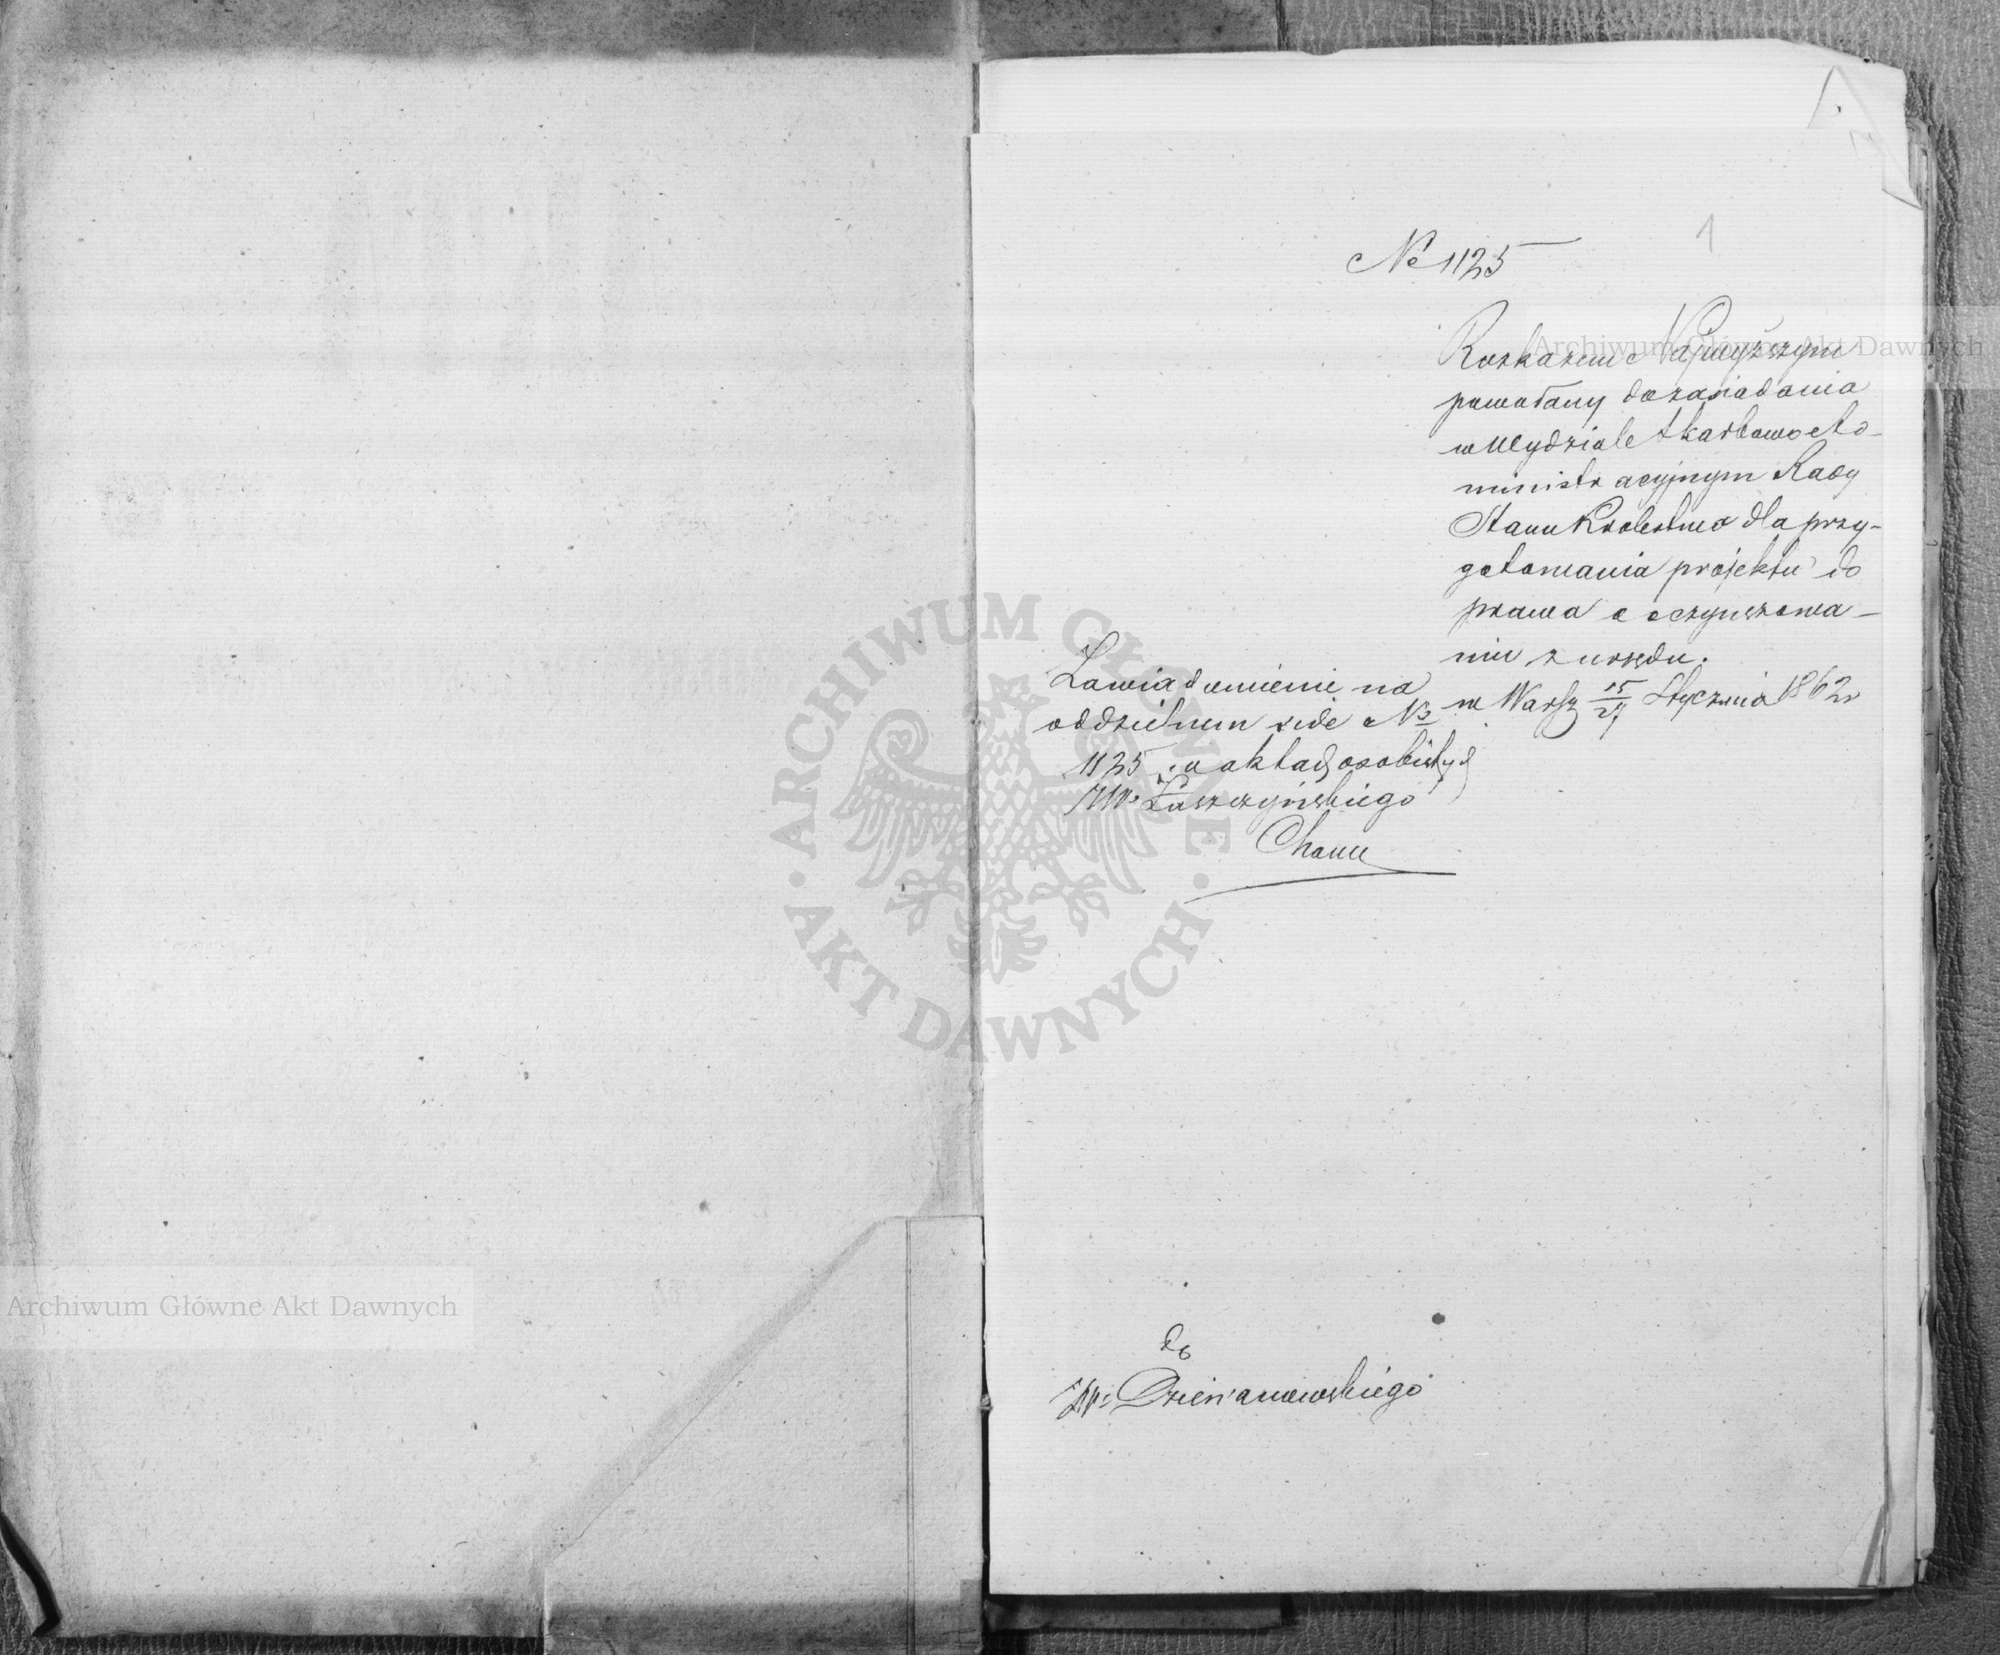 1
№ 1125
Rozkazem Najwyższym
powołany do zasiadania
w Wydziale Skarbowo Ad-
ministracyjnym Rady
Stanu Królestwa dla przy-
gotowania projektu do
prawa o oczynszowa-
niu z urzędu.
w Warsz 15/27 Stycznia 1862 r
Zawiadomienie na
oddzielnem vide №
1125 w aktach osobistych
JW. Łuszczyńskiego
do
JW. Dziewanowskiego
ARCHIWUM GŁÓWNE AKT DAWNYCH
Archiwum Główne Akt Dawnych
Archiwum Główne Akt Dawnych